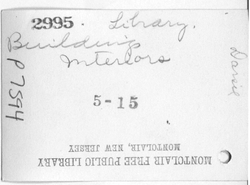 2995. Library.
Buildings
Interiors
P7594
5-15
MONTCLAIR FREE PUBLIC LIBRARY
MONTCLAIR, NEW JERSEY